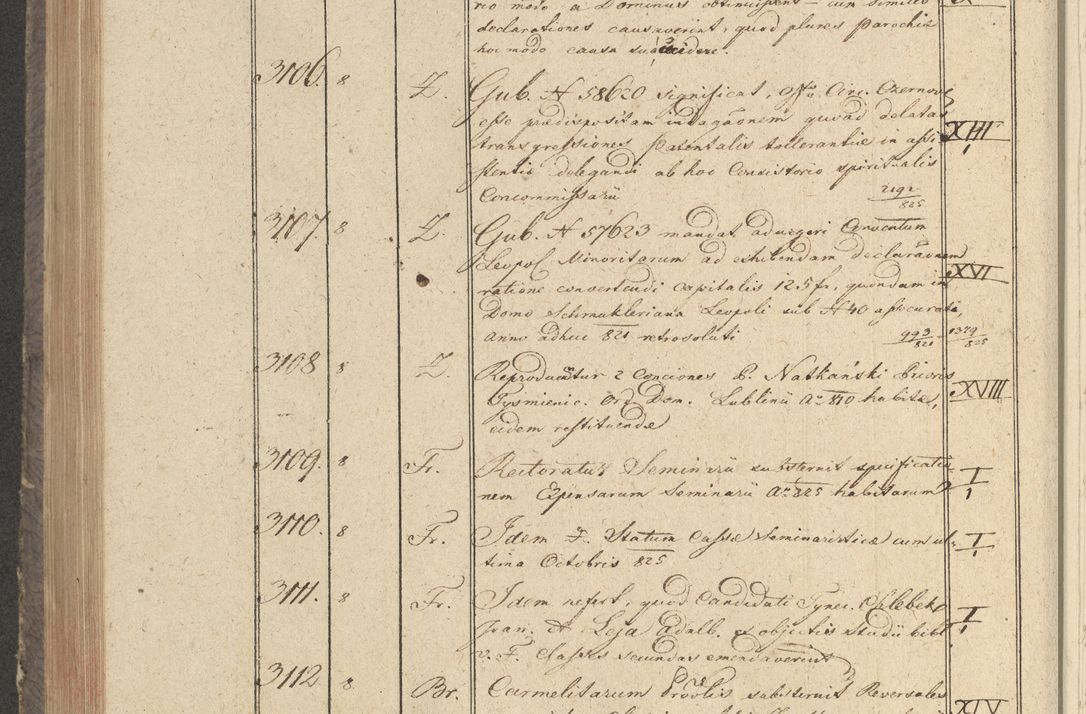 rio modo a Dominus obtinuissent – cum similes
declarationes causaverint, quod plures Parochia
hoc modo causa
3106. 8 Z. Gub. N 58620 significat, Offo. Circ. Czernov. XIII
esse praedispositam indagaonem quoad delatas
transgressiones Patentalis tollerantiae in assi
stentia delegandi ab hoc Consistorio spiritualis
Concommissarii 2192/825
3107. 8 Z. Gub. N 57623 mandat adurgeri Conventum XVI
Leopol Minoritarum ad exhibendam declaraonem
ratione convertendi capitalis 125 fr. quondam in
Domo Schmukleriana Leopoli sub N 40 assecurati,
anno adhuc 821 retrosoluti 993/821 1379/825
3108 8 Z. Reproducuntur 2 Conciones P. Natkański Prioris XVIII
Tysmienic. Ord. Dom. Lublinii Ao 810 habitae,
eidem restituendae
3109. 8 Fr. Rectoratus Seminarii substernit specificatio I
nem Expensarum Seminarii Ao 825 habitarum
3110. 8 Fr. Idem F. Statum Cassae Seminaristicae cum ul I
tima Octobris 825
3111. 8 Fr. Idem refert, quod Candidati Tynec. Chlebek I
Joan. et Leja Adalb. ex objectis studii bibl
v. F. Classes secundas emendaverint
3112. 8 Br. Carmelitarum Provlis substernit Reversales XIV